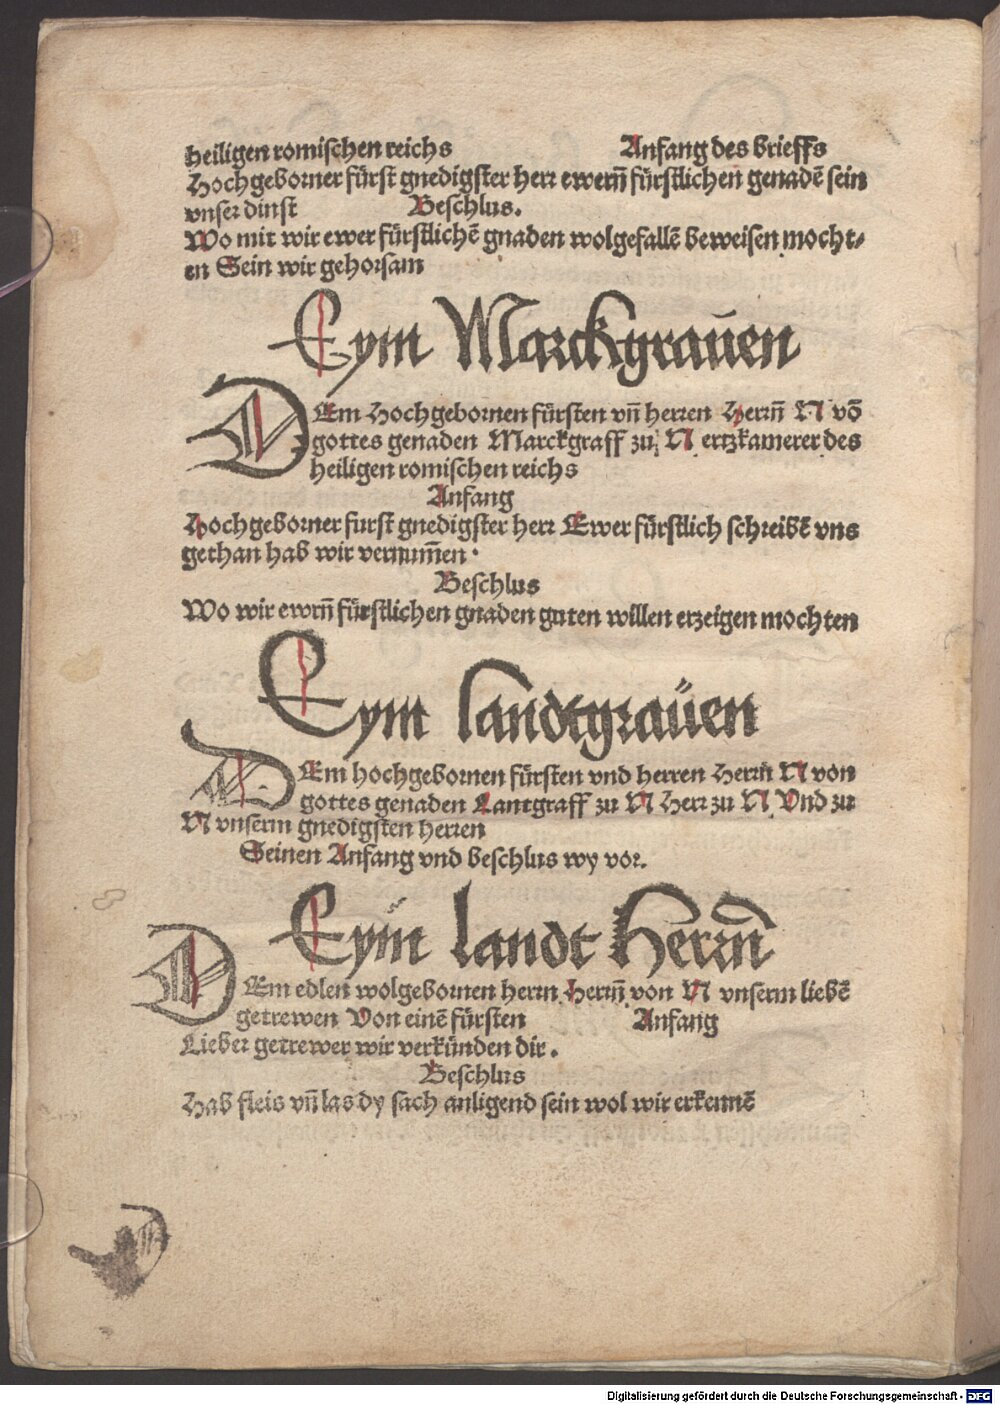 heiligen romischen reichs Anfang des brieffs
Hochgeborner fürst gnedigster herr ewerñ fürstlichen genadē sein
vnser dinst Beschlus.
Wo mit wir ewer fürstlichē gnaden wolgefallē beweisen mocht⸗
en Sein wir gehorsam
Eym Marckgrauen
DEm Hochgebornen fürsten vñ herren Herrñ N võ
gottes genaden Marckgraff zu N ertzkamerer des
heiligen romischen reichs
Anfang
Hochgeborner furst gnedigster herr Ewer fürstlich schreibē vns
gethan hab wir vernum̄en.
Beschlus
Wo wir ewrñ fürstlichen gnaden guten willen erzeigen mochten
Eym landtgrauen
DEm hochgebornen fürsten vnd herren Herrñ N von
gottes genaden Lantgraff zu N Herr zu N Vnd zu
N vnserm gnedigsten herren
Seinen Anfang vnd beschlus wy vor.
Eym landt Herrñ
DEm edlen wolgebornen herrn Herrñ von N vnserm liebē
getrewen Von einē fürsten Anfang
Lieber getrewer wir verkünden dir.
Beschlus
Hab fleis vñ las dy sach anligend sein wol wir erkennē
Digitalisierung gefördert durch die Deutsche Forschungsgemeinschaft - DFG